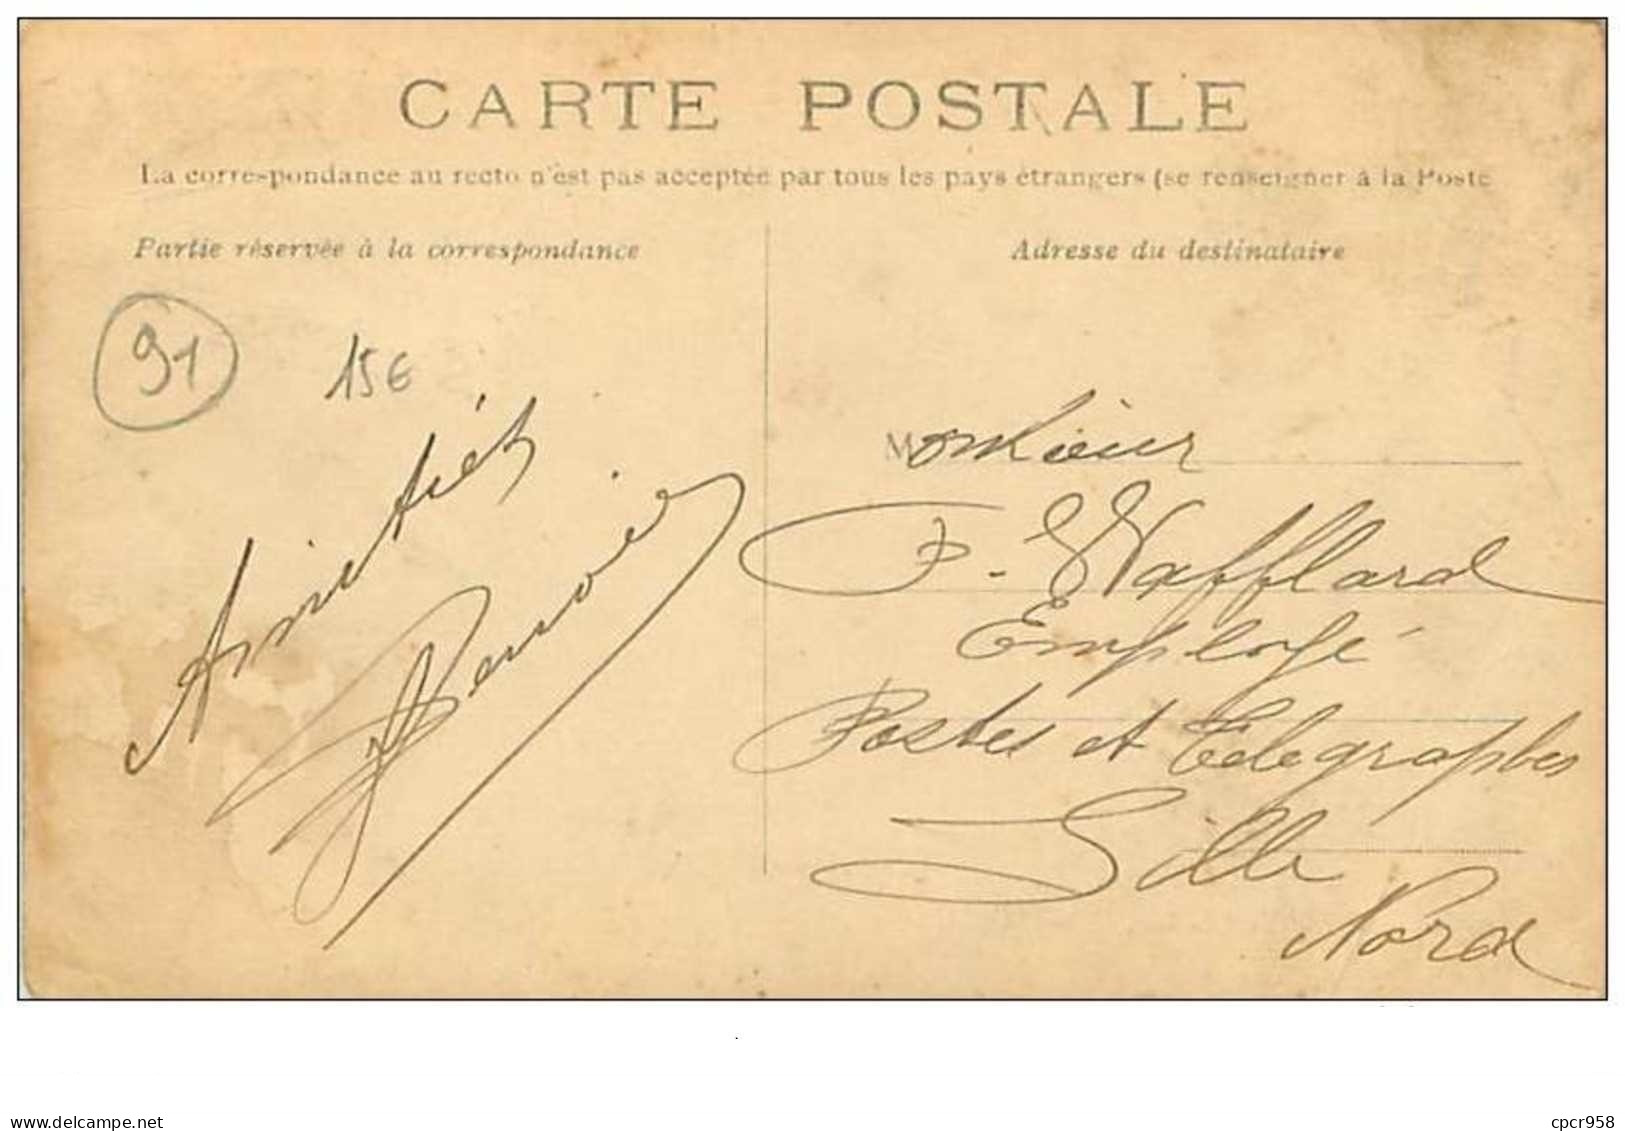 CARTE POSTALE
La correspondance au recto n'est pas acceptée par tous les pays étrangers (se renseigner à la Poste
Partie réservée à la correspondance
Adresse du destinataire
91
15€
Amitiés
Monsieur
F. Wafflard
Employé
Postes et Télégraphes
Lille
Nord
www.delcampe.net
cpcr958